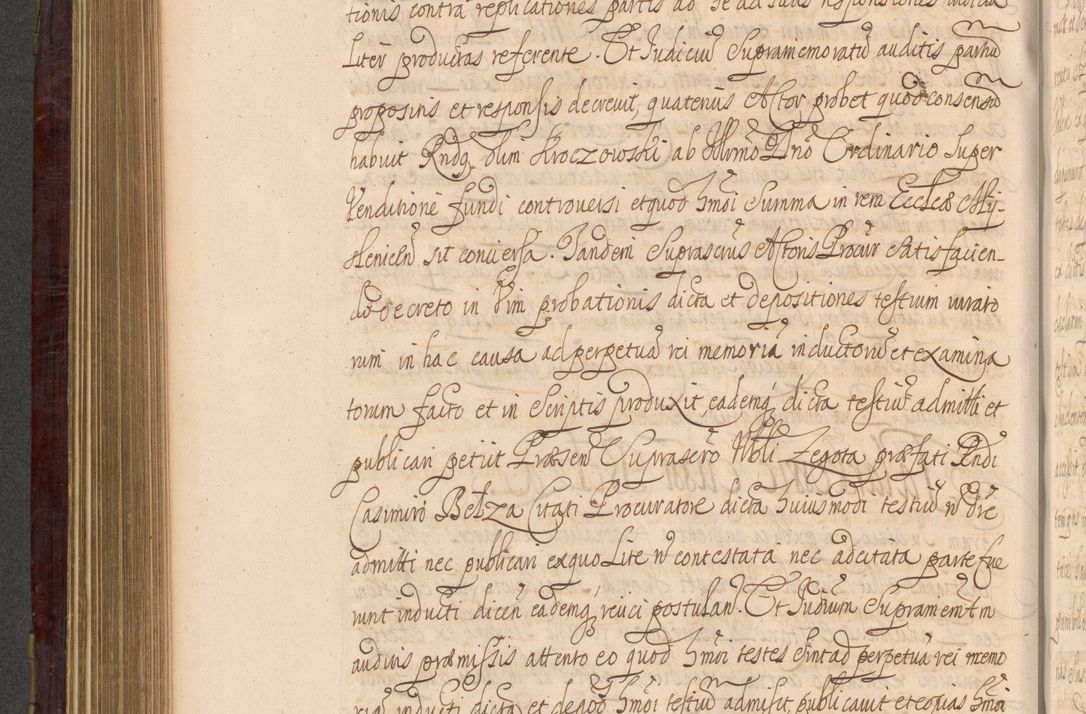 tionis contra replicationes partis ad se ad suas responsiones
liter productas referente. Et Judiciū Supramemoratū auditis partiū
propositis et responsis decrevit, quatenus Actor probet quod consensū
habuit Rndq̧ olim Kroczowski ab Illrmo Dno Ordinario Super
Venditione fundi controversi et quod hmoi Summa in rem Eccłæ My-
slenicen̄ sit conversa. Tandem Suprascrius Actoris Procur Satisfacien-
do decreto in Vim probationis dicta et depositiones testium iurato
rum in hac causa ad perpetuā rei memoriā inductorū et examina
torum facto et in Scriptis produxit, eademq̧ dicta testiū admitti et
publicari petiit Præsen̄ Suprascro Nobli Zegota præfati Rndi
Casimiri Bełza Citati Procuratore dicta huiusmodi testiū n̄ dře
admitti nec publicari ex quo Lite n̄ contestata nec ad citata parte fue
runt inducti dicen̄ eademq̧ reiici postulan̄. Et Judium Supramemtm
auditis præmissis attento eo quod hmoi testes Sint ad perpetuā rei memo
riā inducti dicta et depōo hmoi testiū admisit, publicavit et copias hmoi